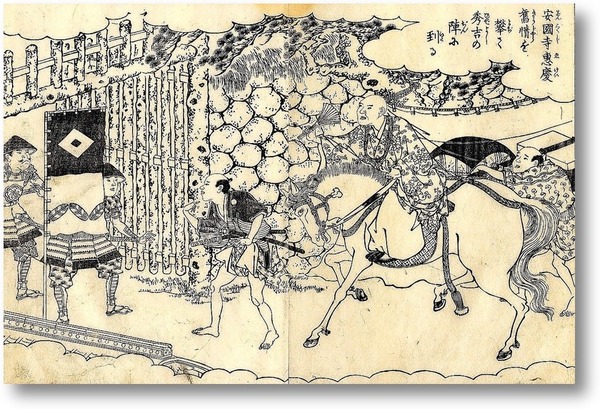 安國寺惠慶
舊情を
攀て
秀吉の
陣に
到る